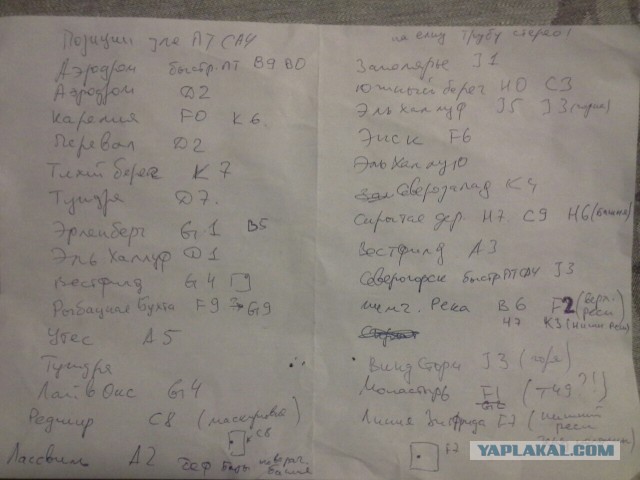 Позиции для ПТ САУ
Аэродром быстр. ПТ В9 В0
Аэродром D2
Карелия F0 К6
Перевал D2
Тихий берег К7
Тундра D7
Эрленберг G1 В5
Эль Халлуф D1
Вестфилд G4
Рыбацкая Бухта F9 G9
Утес А5
Тундра
Лайв Окс G4
Редшир С8 (маскировка)
к С8
Ласвилль А2 деф базы
башня
на след трубу стерео!
Заполярье J1
Южный берег Н0 С3
Эль Халлуф J5 J3
Энск F6
Эль Халлуф
Северозапад К4
Скрытая дер. Н7 С9 Н6 (башня)
Вестфилд А3
Северогорск быстр ПТСАУ J3
Жемч. Река В6 F2 (верх. респ
Н7 К3 (нижн респ)
Винд Сторм J3 (гора)
Монастырь F1 (Т49?!)
G2
Линия Зигфрида Е7 (нижний
респ
F7
YAPLAKAL.COM